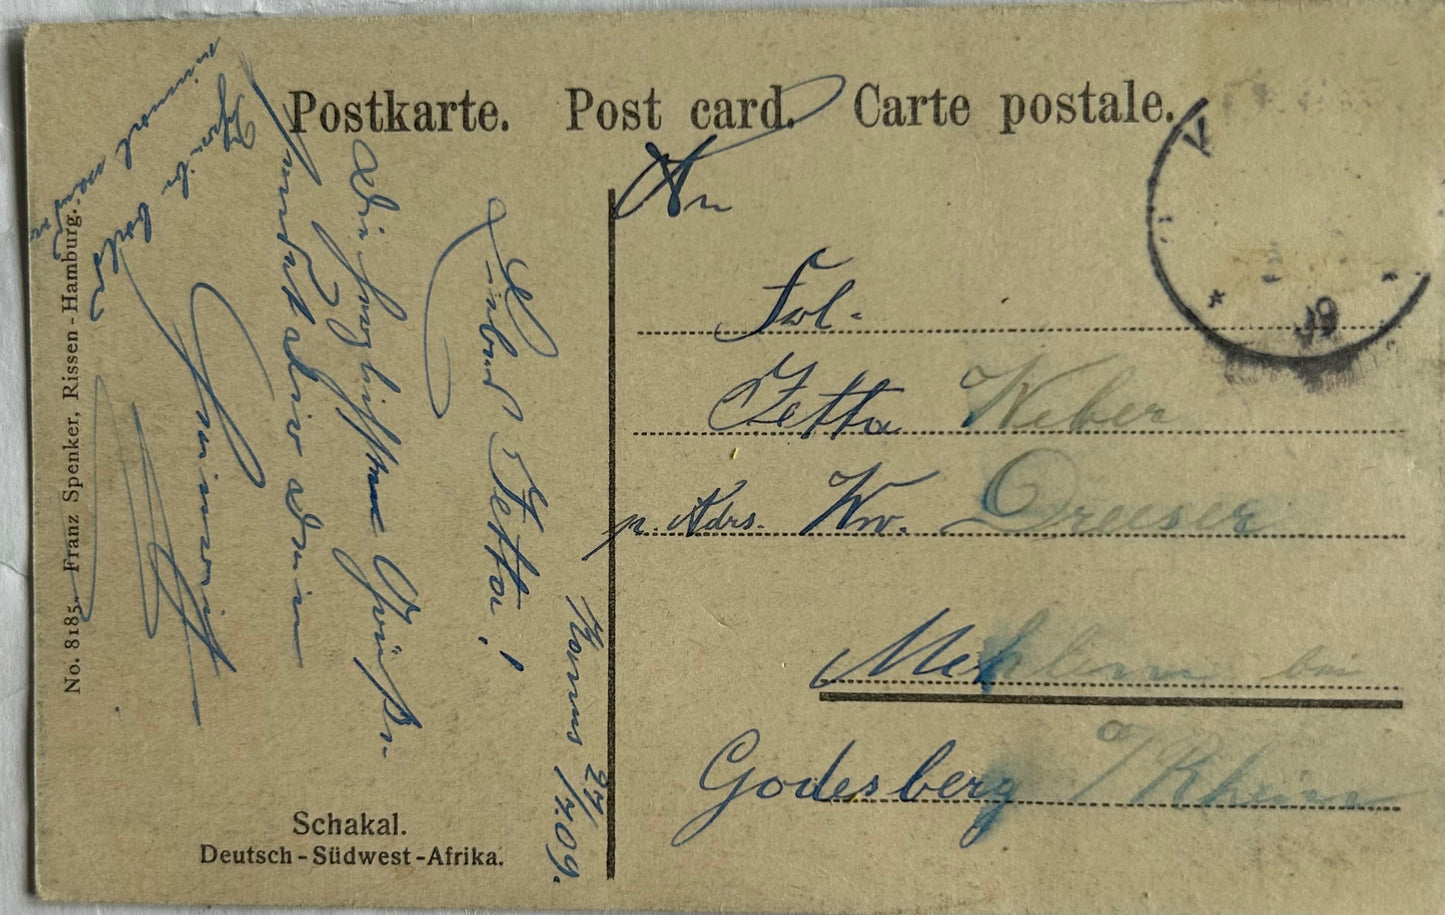 Postkarte. Post card. Carte postale.
An
Frl.
Jetta Weber
p. Adrs. Ww. Dreeser
Mehlem bei
Godesberg a/Rhein
Kanus 27/7.09.
Liebes Jetta!
Die herzlichsten Grüße
sendet dir dein
Schreibe bald
einmal wieder
Schakal.
Deutsch-Südwest-Afrika.
No. 8185. Franz Spenker, Rissen-Hamburg.
V
* 09